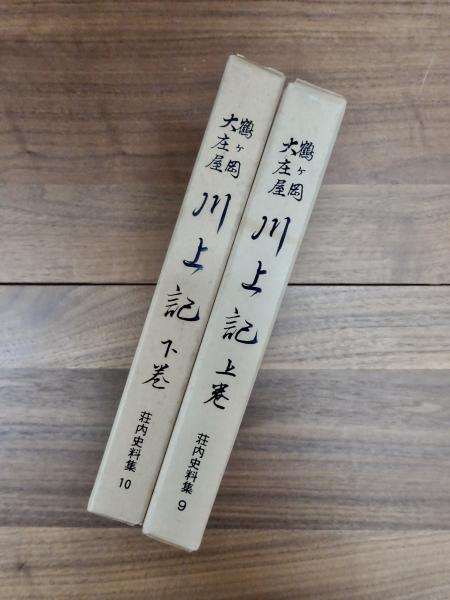 鶴ヶ岡
大庄屋
川上記 上巻
荘内史料集 9
鶴ヶ岡
大庄屋
川上記 下巻
荘内史料集 10